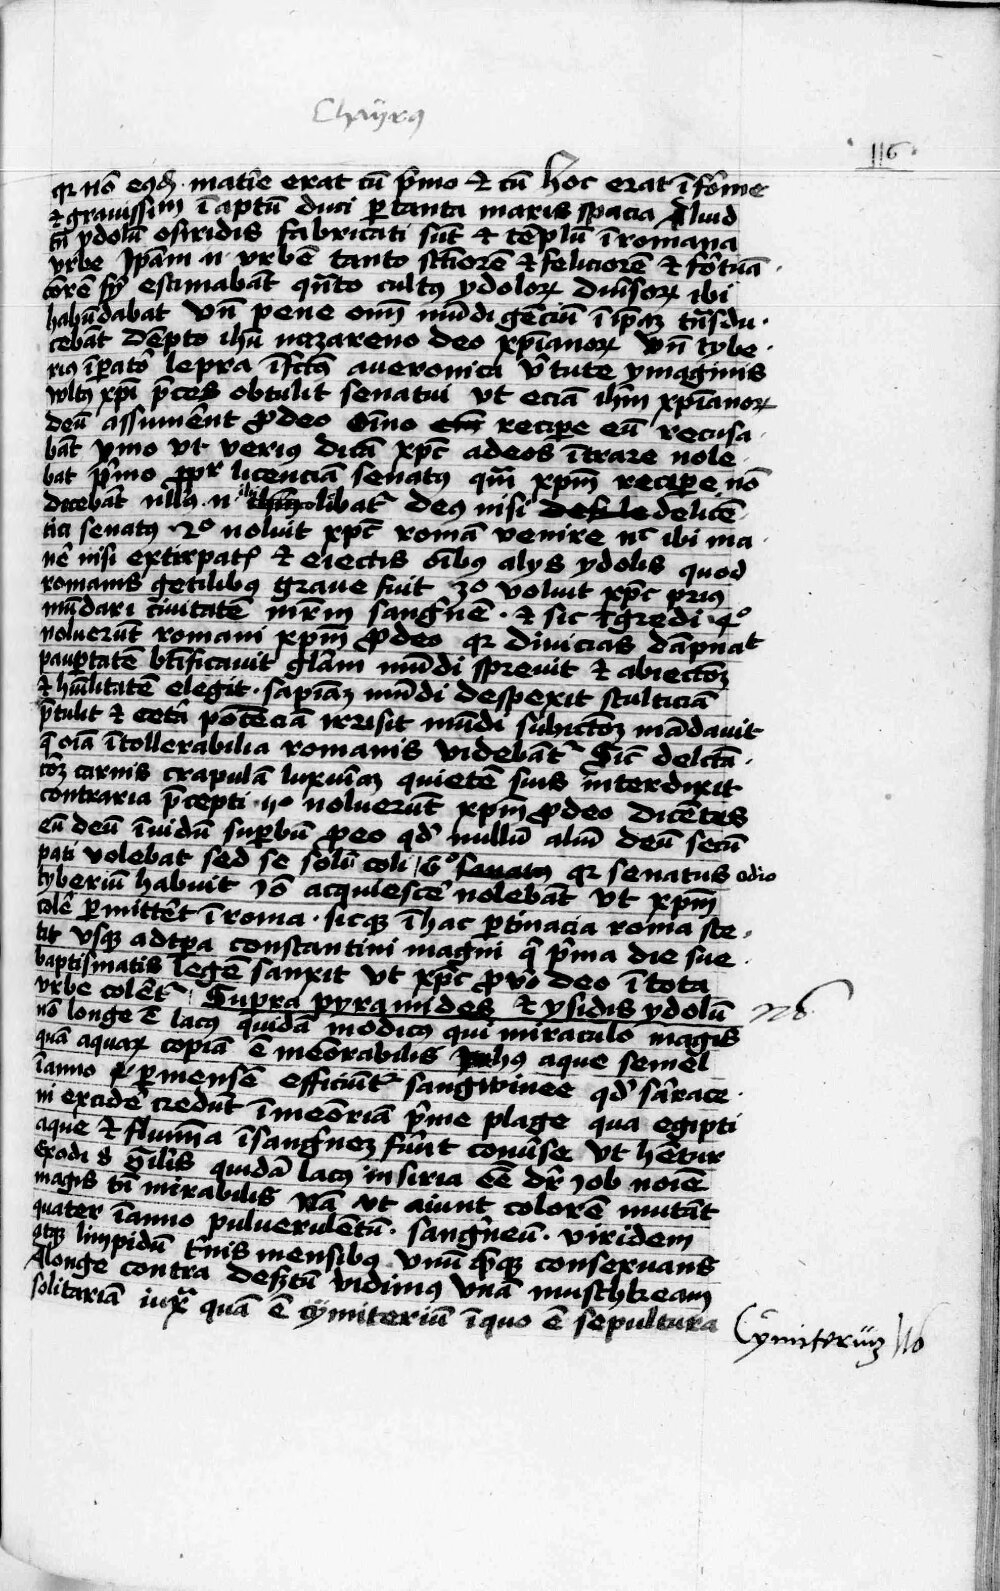 Chaÿrꝯ
116
qr nō eiꝰdē matīe erat cū p̄mo et cū hoc erat ī fōrme
et grauissim ī aptū duci p tanta maris spacia Aliud
tn̄ ydolū osiridis fabricati sūt et tēplū ī romana
vrbe Ipam n vrbē tanto sctīorē et feliciorē et fōrtūa
estimabāt qn̄to cultꝰ ydoloꝝ diuīsoꝝ ibi
habūdabat vn̄ pene om̄ mūdi gēciū ī ip̄aꝫ tn̄sdu
cebāt dēpto ihū nazareno deo xp̄ianoꝝ vn̄ tybe
riꝰ īpatōr lepra īfctꝰ a veronica v̄tute ymaginis
wltꝰ xp̄i p̄ces obtulit senatui vt eciā ihm̄ xp̄ianoꝝ
deū assumēnt ꝓ deo oīno recipe eū recusa
bāt ymo vt veriꝰ dicā xp̄c adeos ītrare nole
bat p̄mo ꝓpr licenciā senatꝰ quā xp̄m recipe nō
dicebāt nllꝰ n ibi colibatr deꝰ nisi de licē
cia senatꝰ 2o noluit xp̄c romā venire nc ibi ma
nē nisi extirpatꝭ et eiectis oībꝰ alys ydolis quod
romanis gētilibꝰ graue fuit 3o voluit xp̄c priꝰ
mūdari ciuitatē mrm sangnē et sic īgredi 4o
noluerūt romani xp̄m ꝓ deo qr diuicias dāpnat
paup̄tatē btīficauit glām mūdi spreuit et abiectōꝫ
et hūilitatē elegit sapiāꝫ mūdi despexit stulticiā
p̄tulit et cetā potēciā irrisit mūdi subiectōꝫ mādauit
q̄ oīa ītollerabilia romanis videbātr Sic delcta
cōꝫ carnis crapulā luxuriāꝫ quietē suis interdixit
contraria p̄cepti 5o noluerūt xp̄m ꝓ deo dicētes
eū deū īuidū supbū ꝓ eo qd nullū aliū deū secū
pati volebat sed se solū coli 6o qr senatus odio
tyberiū habuit iō acquiescē nolebāt vt xp̄m
colē pmittēt ī roma sicqꝫ ī hac ptinacia roma ste
tit vsqꝫ ad tpa constantini magni q̄ p̄ma die sue
baptismatis legē sanxit vt xp̄c ꝓ vō deo ī tota
vrbe colētr Supra pyramides et ysidis ydolū
nō longe ē lacꝰ quidā modicꝰ qui miraculo magis
quā aquaꝝ copiā ē meōrabilis hꝰ aque semel
ī anno p mensē efficiūtr sangwinee qd sarace
ni excidē credūt ī meōriā p̄me plage qua egipti
aque et flumīa ī sangneꝫ fūnt conūse vt hētur
Exodi 8 Silis quidā lacꝰ in siria eē dr iob noīe
magis tn̄ mirabilis Nā vt aiunt colorē mutāt
quater ī anno puluerulētū sangneū viridem
atqꝫ limpidū t̄nis mensibꝰ vnū qēqꝫ conseruans
A longe contra desertū vidimꝰ vnā muschkeam
solitariā iuxta quā ē cymiteriū ī quo ē sepultura
Cÿmiteriūꝫ